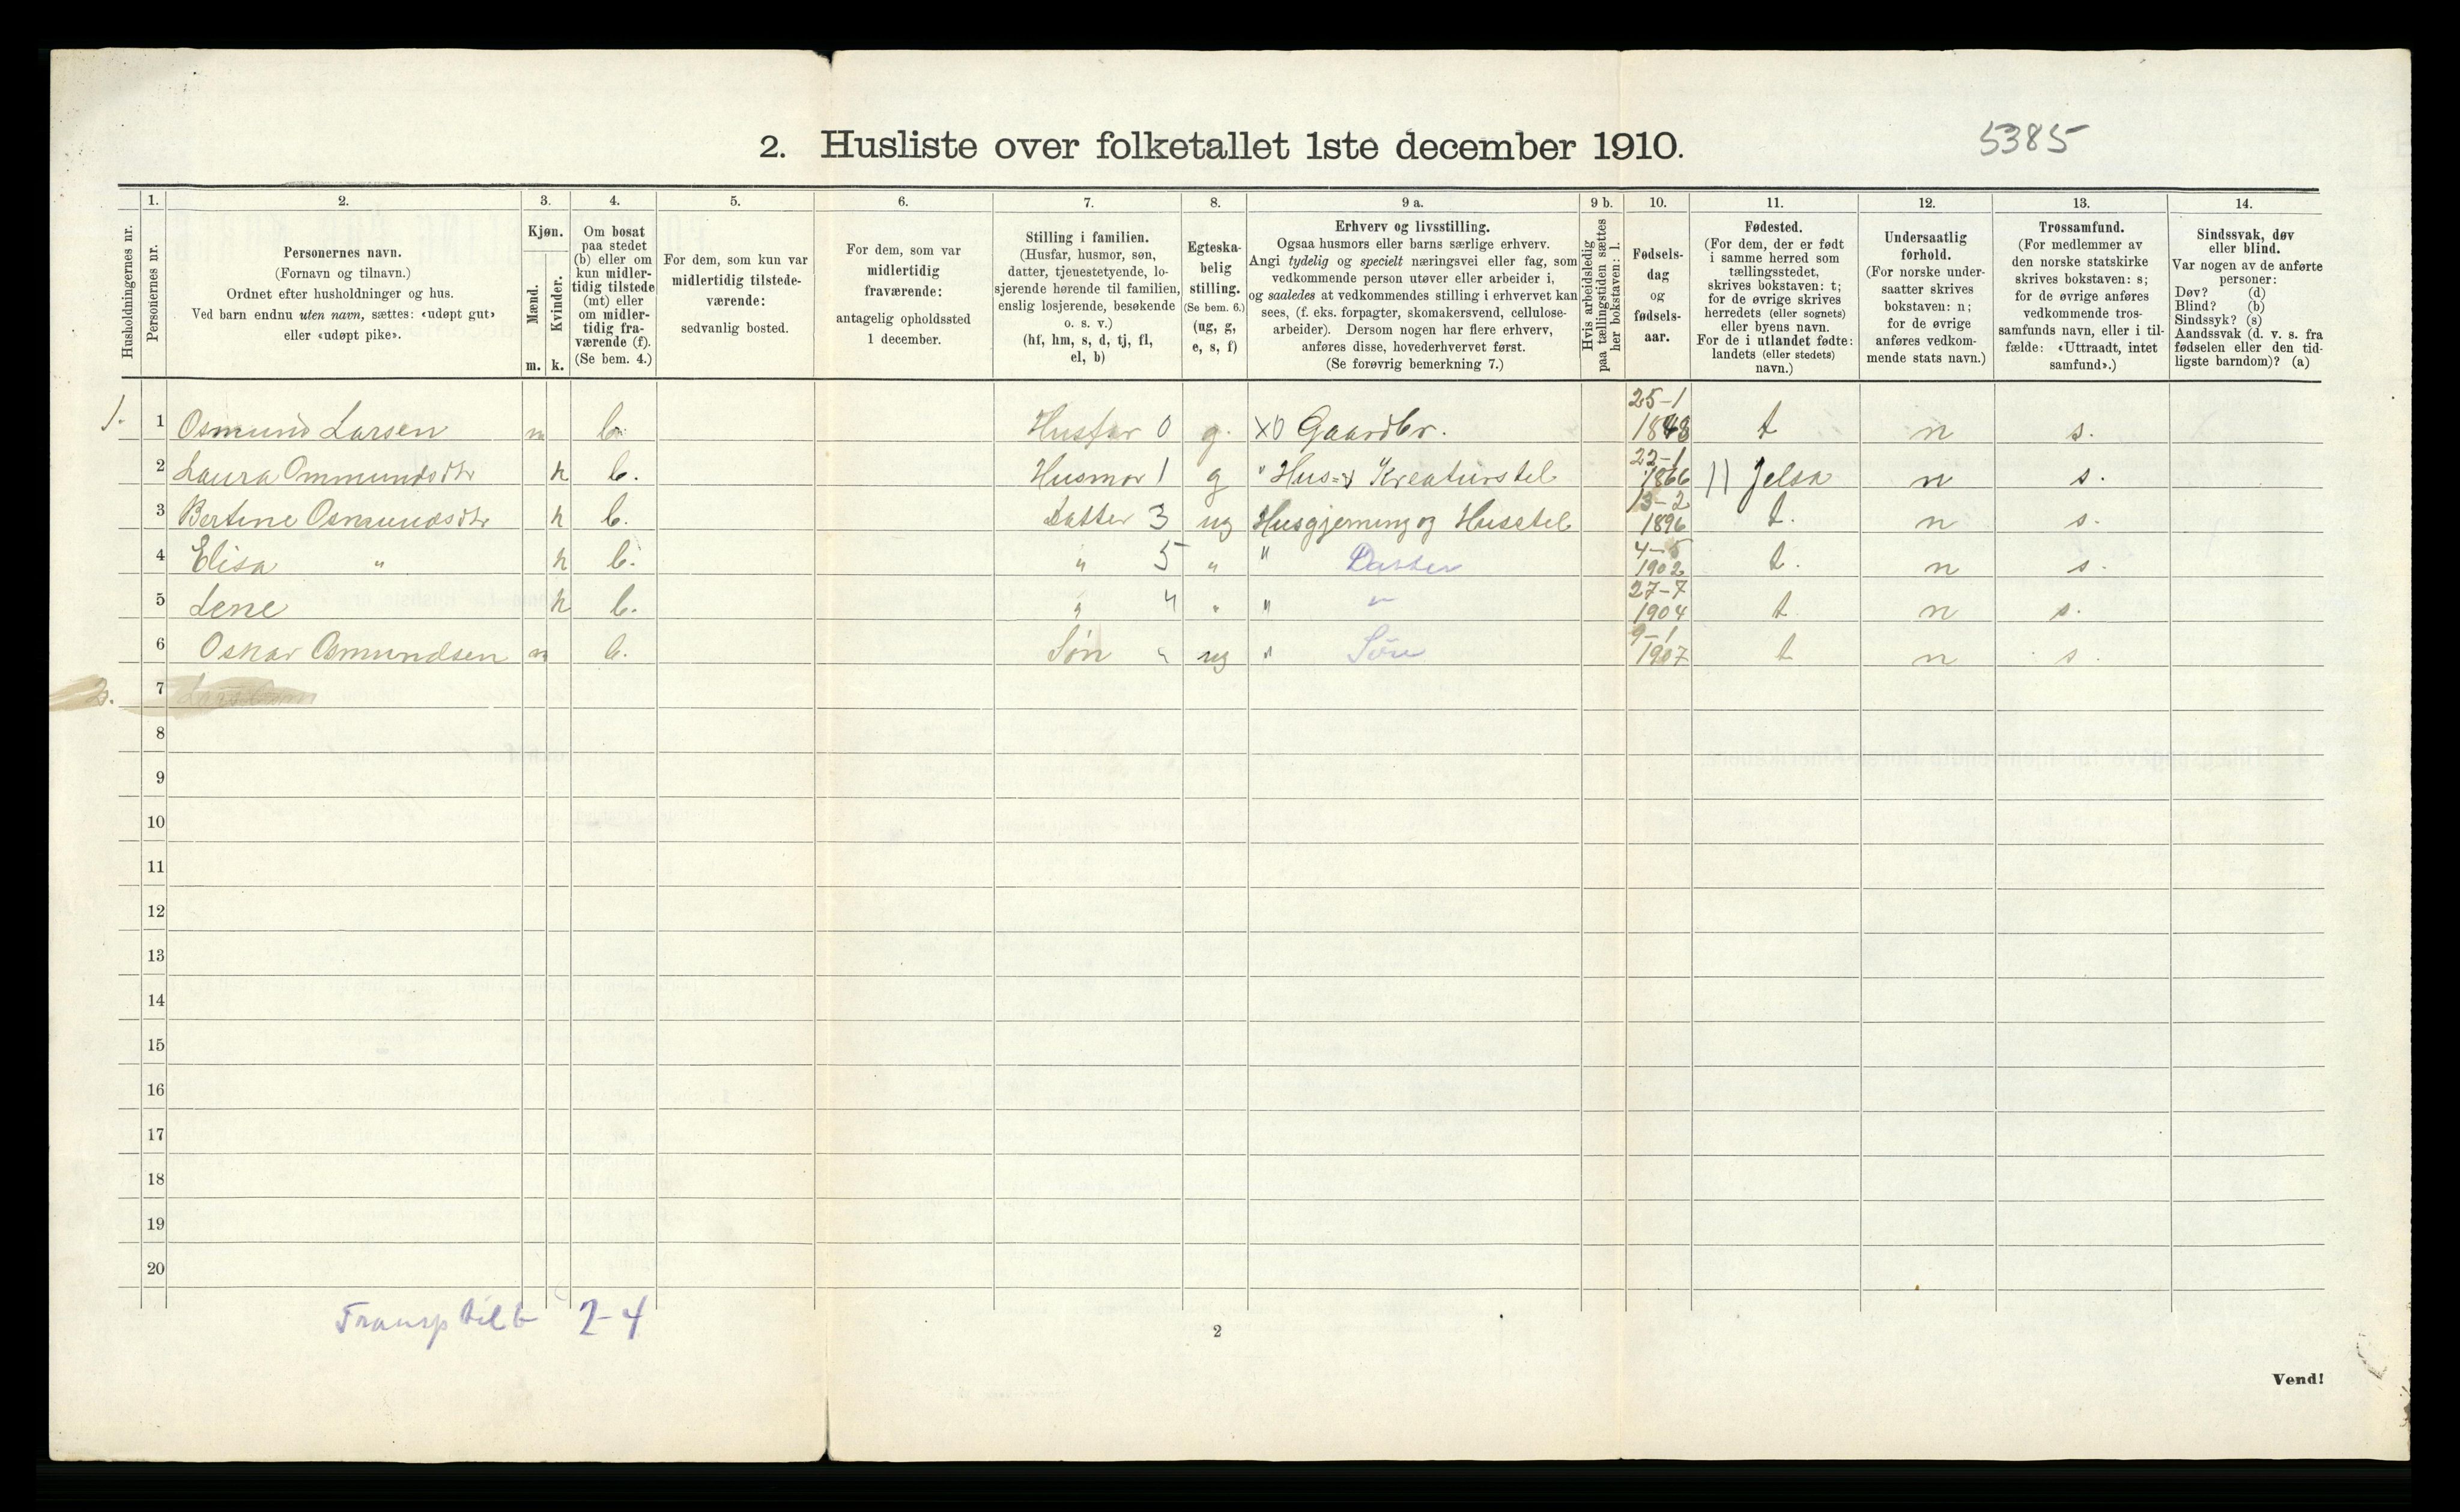 2. Husliste over folketallet 1ste december 1910.
5385
Husholdningernes nr.
1.
Personernes nr.
2.
Personernes navn.
(Fornavn og tilnavn.)
Ordnet efter husholdninger og hus.
Ved barn endnu uten navn, sættes: «udøpt gut»
eller «udøpt pike».
3.
Kjøn.
Mænd.
Kvinder.
m. k.
4.
Om bosat
paa stedet
(b) eller om
kun midler-
tidig tilstede
(mt) eller
om midler-
tidig fra-
værende (f).
(Se bem. 4.)
5.
For dem, som kun var
midlertidig tilstede-
værende:
sedvanlig bosted.
6.
For dem, som var
midlertidig
fraværende:
antagelig opholdssted
1 december.
7.
Stilling i familien.
(Husfar, husmor, søn,
datter, tjenestetyende, lo-
sjerende hørende til familien,
enslig losjerende, besøkende
o. s. v.)
(hf, hm, s, d, tj, fl,
el, b)
8.
Egteska-
belig
stilling.
(Se bem. 6.)
(ug, g,
e, s, f)
9 a.
Erhverv og livsstilling.
Ogsaa husmors eller barns særlige erhverv.
Angi tydelig og specielt næringsvei eller fag, som
vedkommende person utøver eller arbeider i,
og saaledes at vedkommendes stilling i erhvervet kan
sees, (f. eks. forpagter, skomakersvend, cellulose-
arbeider). Dersom nogen har flere erhverv,
anføres disse, hovederhvervet først.
(Se forøvrig bemerkning 7.)
9 b.
Hvis arbeidsledig
paa tællingstiden sættes
her bokstaven: l.
10.
Fødsels-
dag
og
fødsels-
aar.
11.
Fødested.
(For dem, der er født
i samme herred som
tællingsstedet,
skrives bokstaven: t;
for de øvrige skrives
herredets (eller sognets)
eller byens navn.
For de i utlandet fødte:
landets (eller stedets)
navn.)
12.
Undersaatlig
forhold.
(For norske under-
saatter skrives
bokstaven: n;
for de øvrige
anføres vedkom-
mende stats navn.)
13.
Trossamfund.
(For medlemmer av
den norske statskirke
skrives bokstaven: s;
for de øvrige anføres
vedkommende tros-
samfunds navn, eller i til-
fælde: «Uttraadt, intet
samfund».)
14.
Sindssvak, døv
eller blind.
Var nogen av de anførte
personer:
Døv? (d)
Blind? (b)
Sindssyk? (s)
Aandssvak (d. v. s. fra
fødselen eller den tid-
ligste barndom)? (a)
1. 1 Osmund Larsen m b. Husfar 0 g. X0 Gaardbr. 25-1 1848 t n s.
2 Laura Ommundsdtr k b. Husmor 1 g " Hus= & Kreaturstel 22-1 1866 )) Jelsa n s.
3 Bertine Osmundsdtr k b. Datter 3 ug Husgjerning og Husstel 13-2 1896 t. n s.
4 Elisa " k b. " 5 " " Datter 4-5 1902 t. n s.
5 Lene k b. " 4 " " " 27-7 1904 t n s.
6 Oskar Osmundsen m b. Søn " ug " Søn 9-1 1907 t n s.
2. 7
8
9
10
11
12
13
14
15
16
17
18
19
20
Transp til b 2-4
2
Vend!